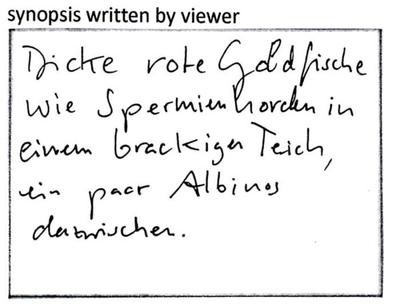 synopsis written by viewer
Dicke rote Goldfische
wie Spermienhorden in
einem brackigen Teich,
ein paar Albinos
dazwischen.